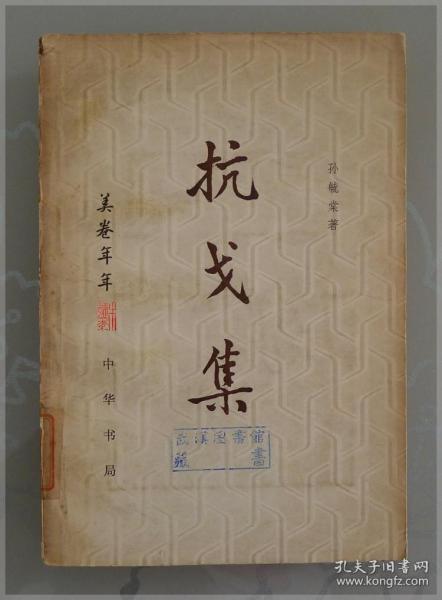 抗戈集
孙毓棠著
美卷年年
中华书局
武漢图書館
藏書
孔夫子旧书网
www.kongfz.com